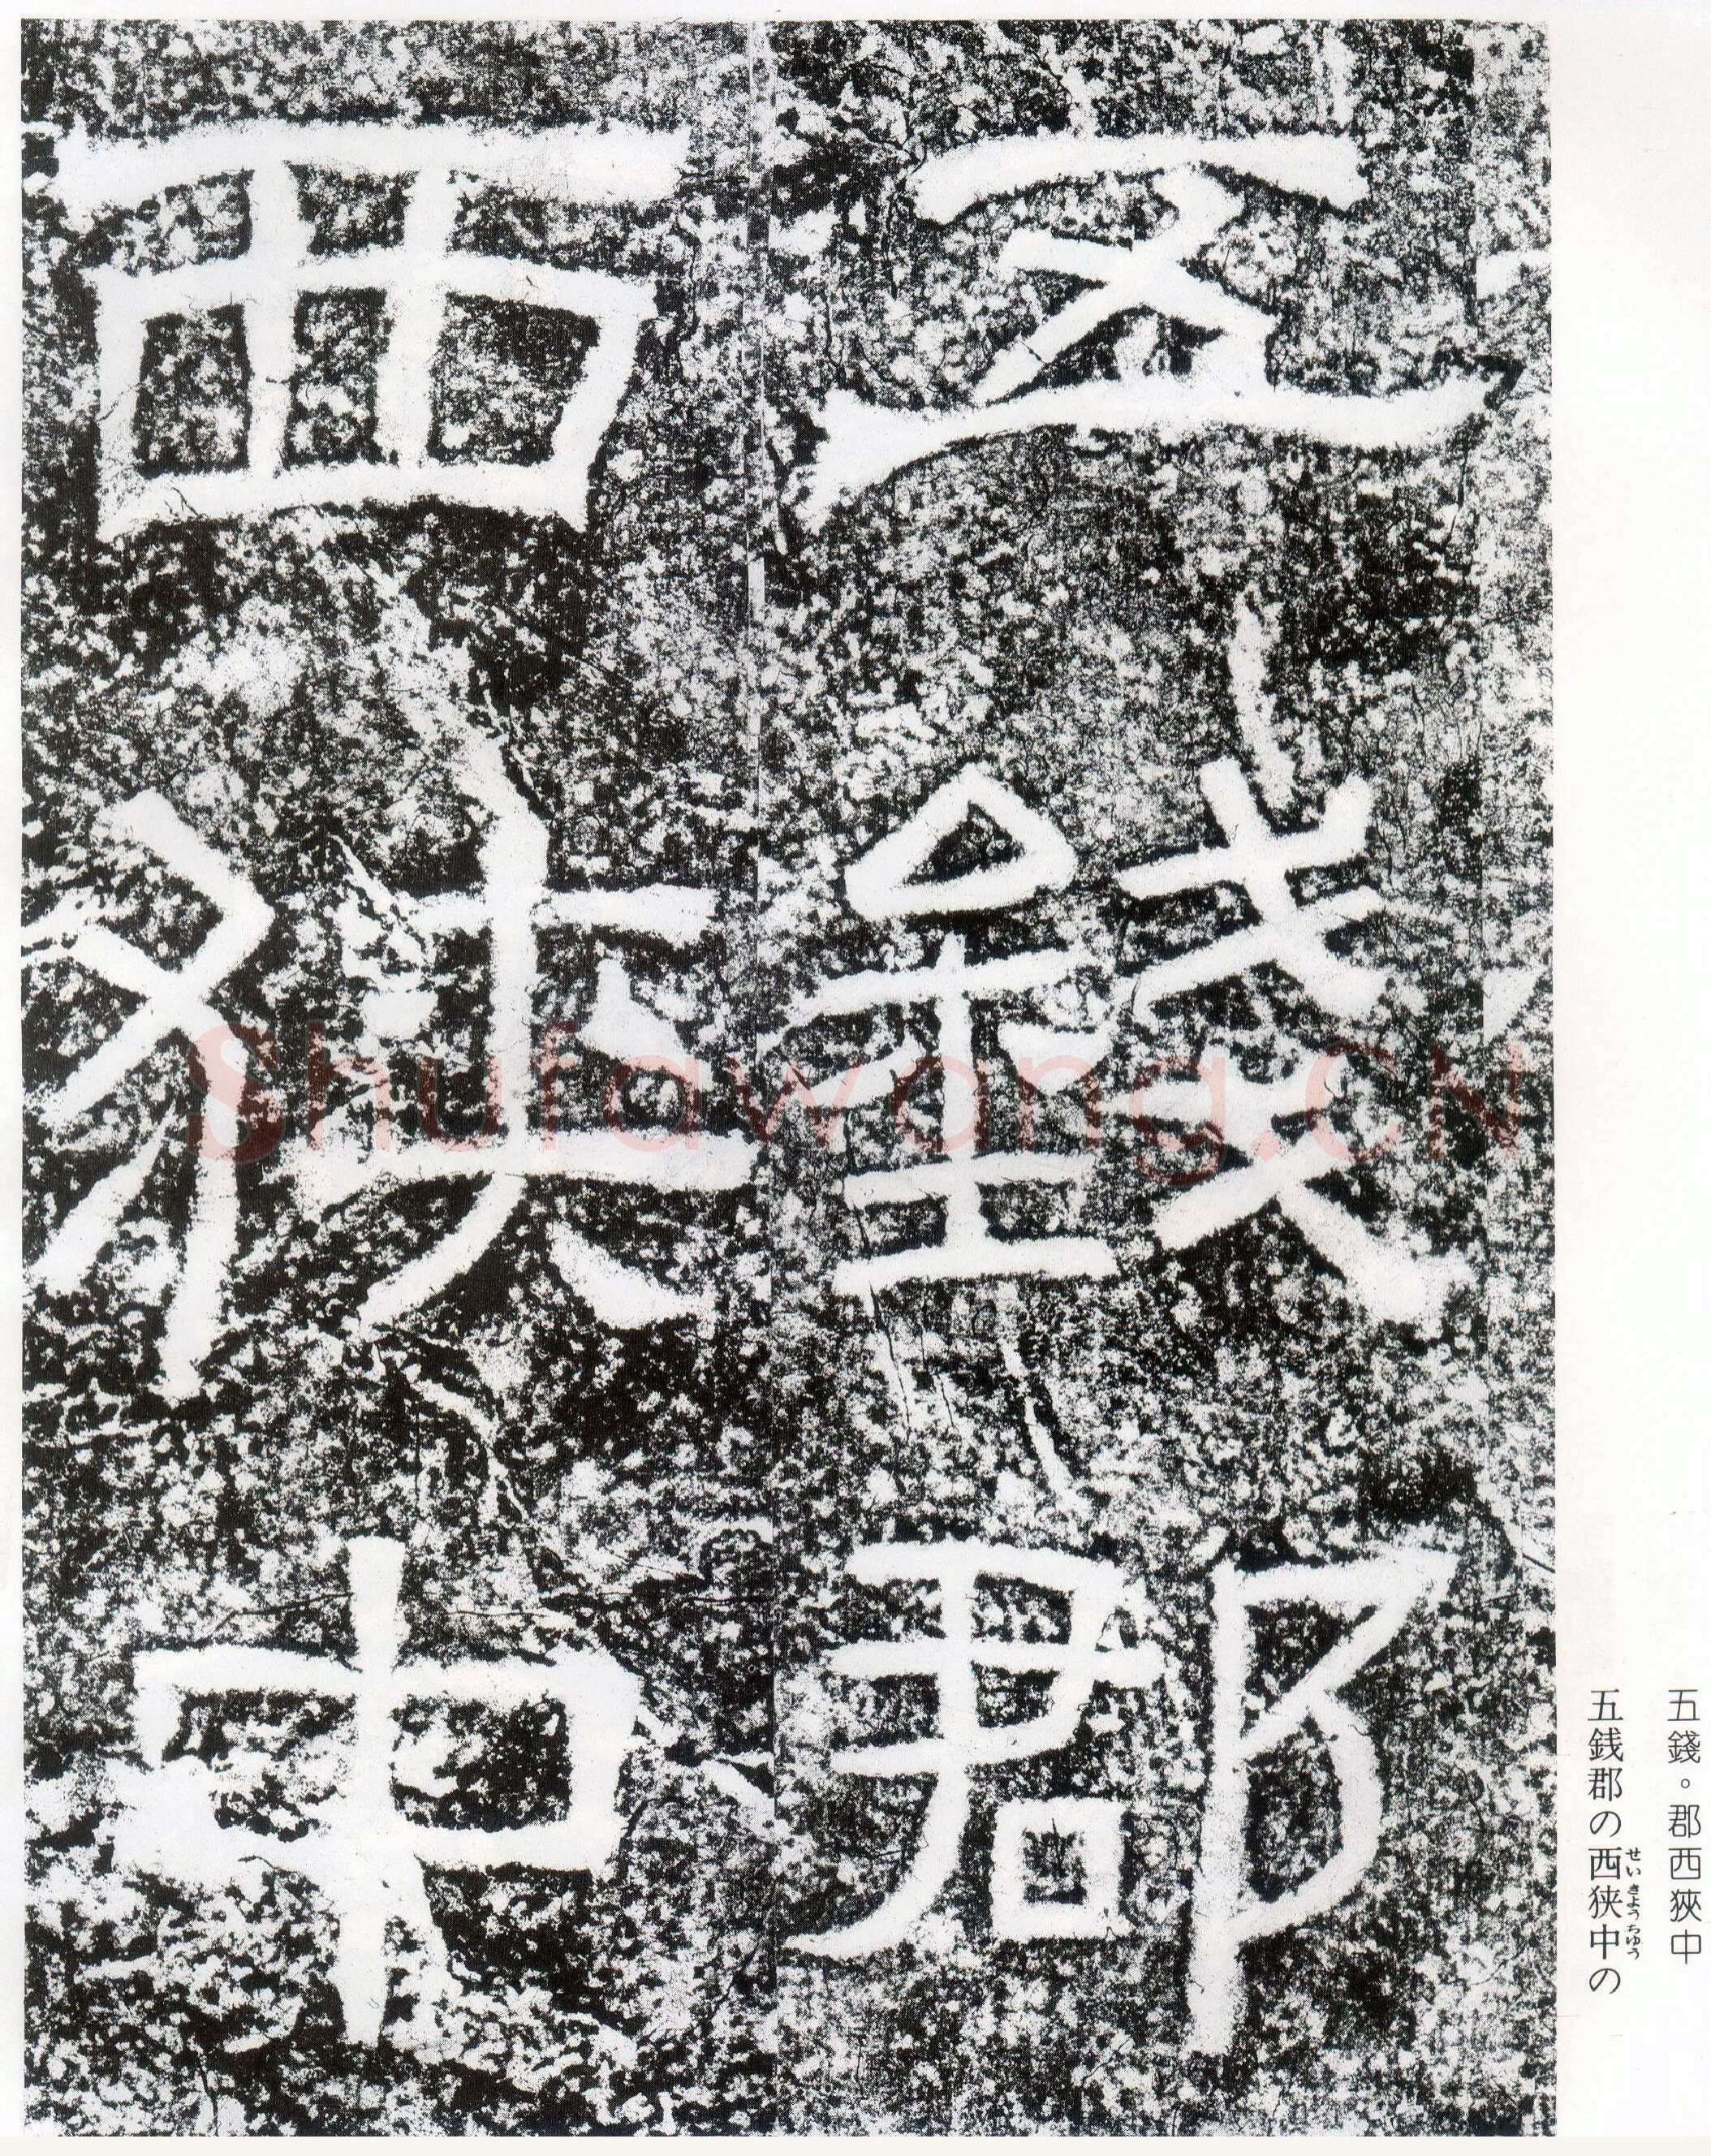 五錢。郡西狹中
五銭郡の西狭中の
せいきょうちゅう
五錢郡
西狹中
Shufawang.CN